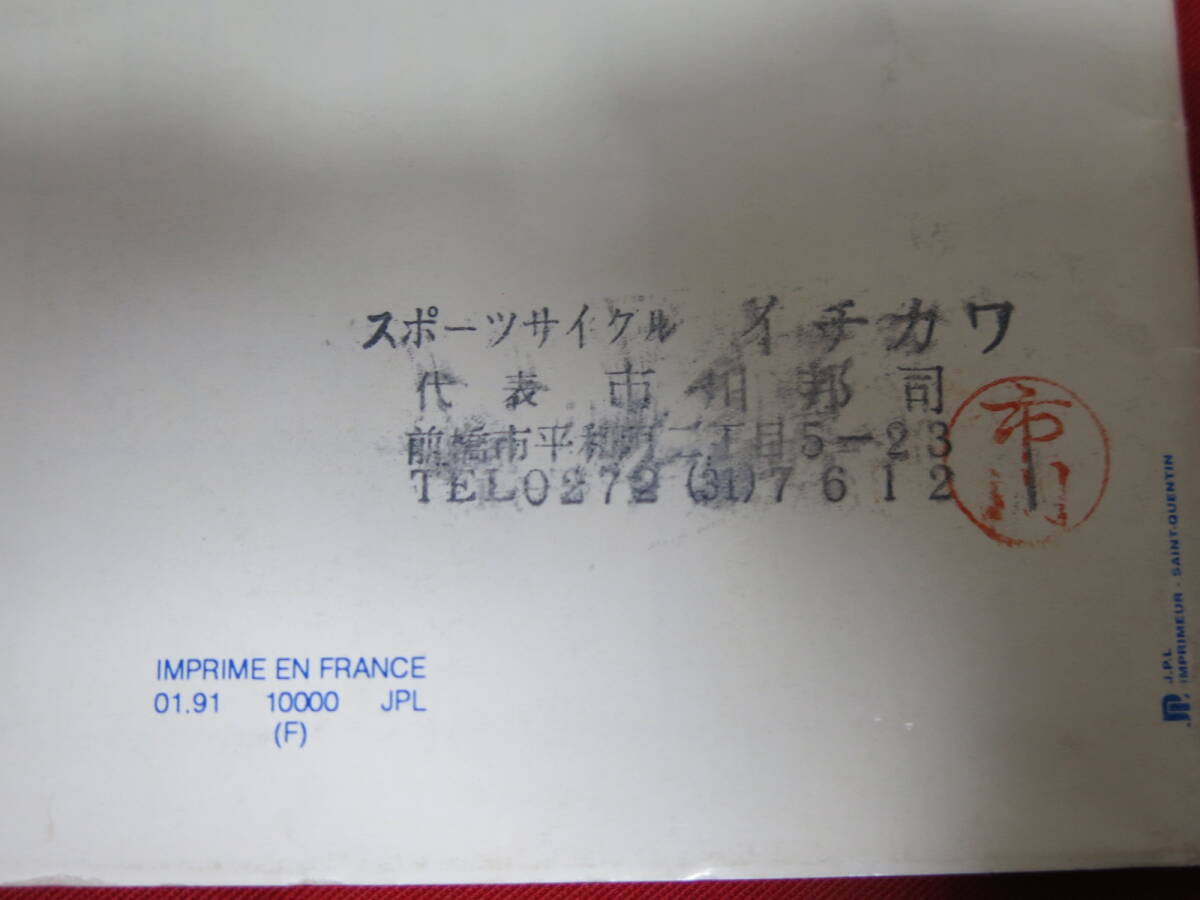 スポーツサイクル イチカワ
代表 市川邦司
前橋市平和町二丁目5-23
TEL0272(31)7612
市川
IMPRIME EN FRANCE
01.91 10000 JPL
(F)
J.P.L
IMPRIMEUR - SAINT-QUENTIN